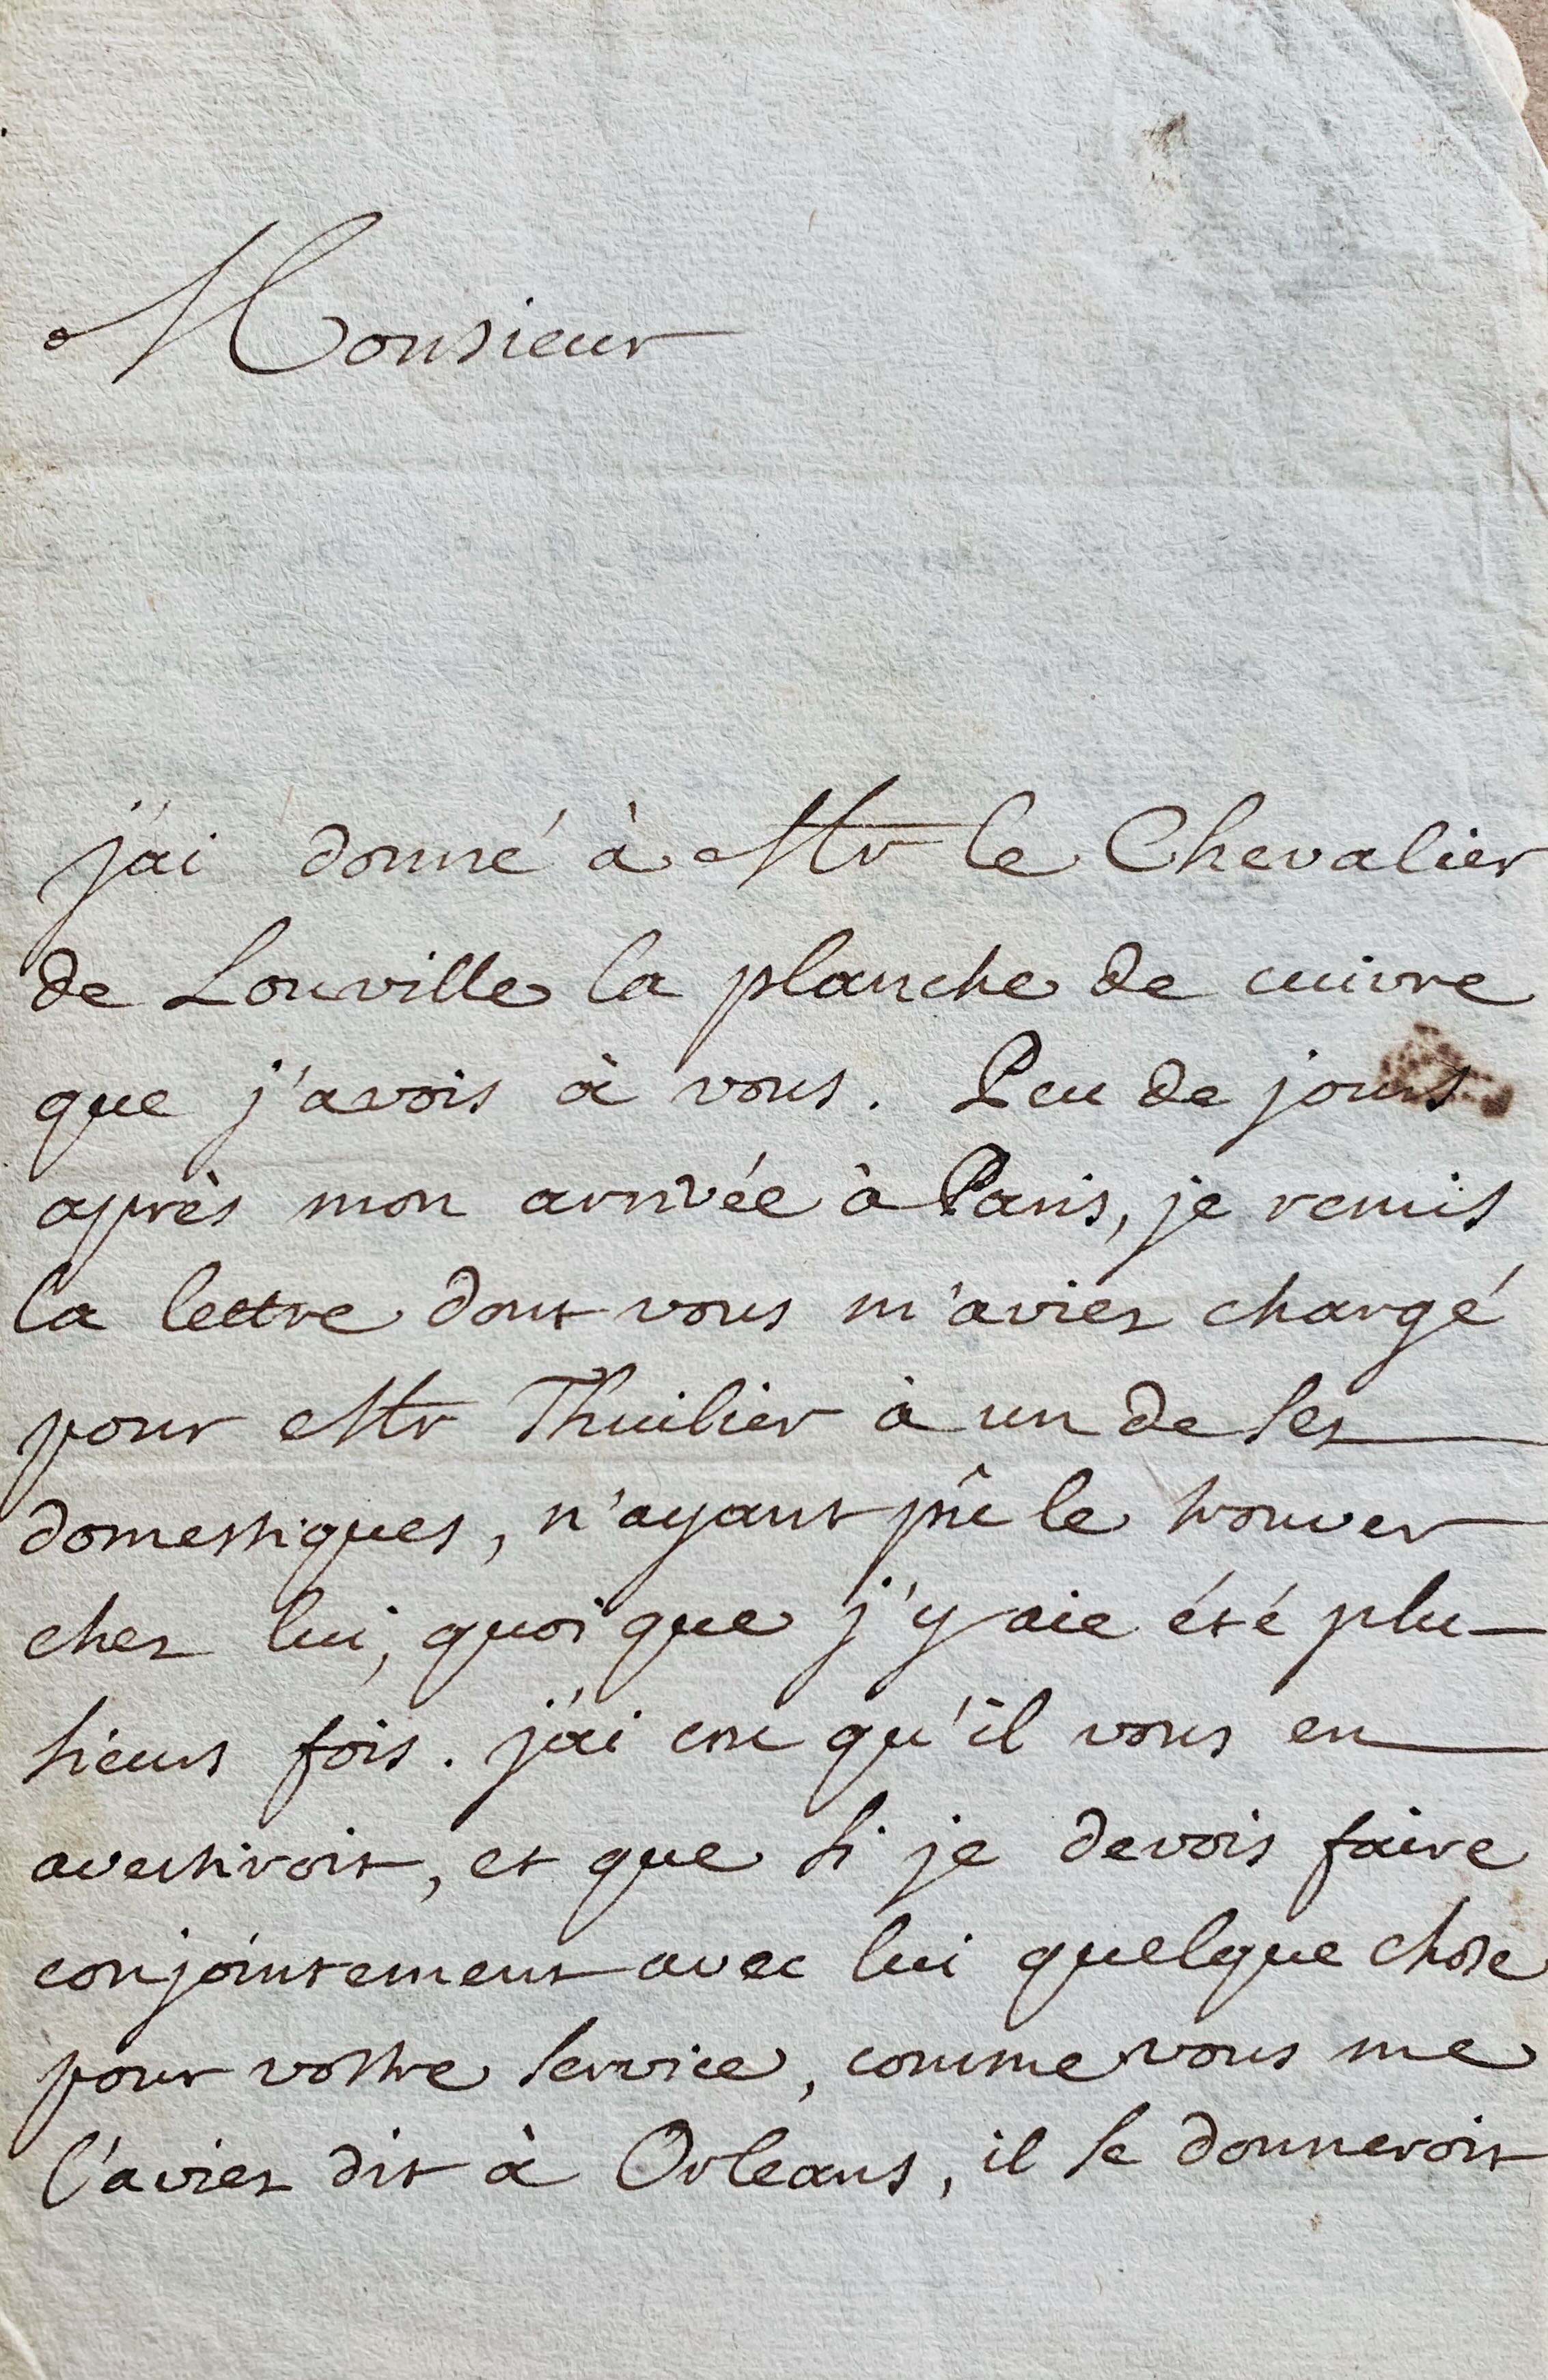 Monsieur
j'ai donné à Mr le Chevalier
de Louville la planche de cuivre
que j'avois à vous. Peu de jours
après mon arrivée à Paris, je remis
la lettre dont vous m'aviez chargé
pour Mr Thuilier à un de ses
domestiques, n'ayant pû le trouver
chez lui, quoi que j'y aie été plu-
sieurs fois. j'ai cru qu'il vous en
avertiroit, et que si je devois faire
conjointement avec lui quelque chose
pour vostre service, comme vous me
l'aviez dit à Orleans, il se donneroit